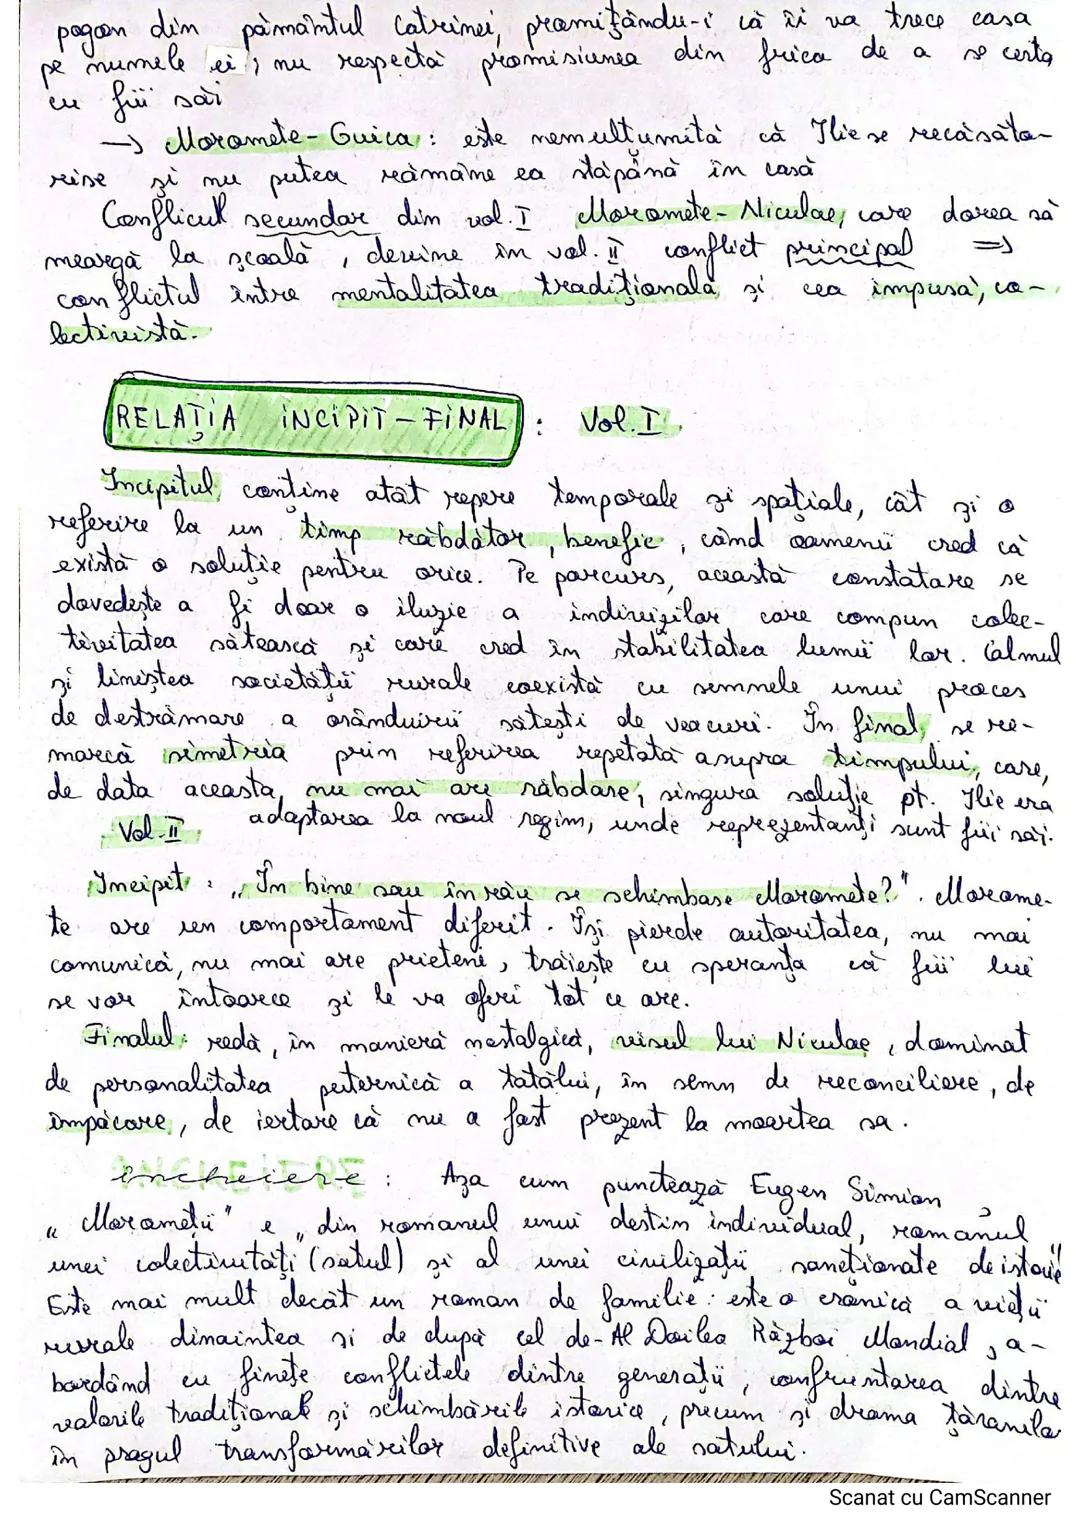 pogon din pământul Catrinei, promițându-i că îi va trece casa
pe numele ei; nu respectă promisiunea din frica de a se certa
cu fiii săi
→ Moromete-Guica: este nemulțumită că Ilie se recăsăto-
rise și nu putea rămâne ea stăpână în casă
Conflicul secundar din vol. I Moromete-Niculae, care dorea să
meargă la școală, devine în vol. II conflict principal ⇒
conflictul între mentalitatea tradițională și cea impusă, co-
lectivistă.
RELAȚIA INCIPIT-FINAL: Vol. I
Incipitul conține atât repere temporale și spațiale, cât și o
referire la un timp răbdător, benefic, când oamenii cred că
există o soluție pentru orice. Pe parcurs, această constatare se
dovedește a fi doar o iluzie a indivizilor care compun colec-
tivitatea sătească și care cred în stabilitatea lumii lor. Calmul
și liniștea societății rurale coexistă cu semnele unui proces
de destrămare a orânduirii sătești de veacuri. În final, se re-
marcă simetria prin referirea repetată asupra timpului, care,
de data aceasta, nu mai are răbdare, singura soluție pt. Ilie era
adaptarea la noul regim, unde reprezentanți sunt fiii săi.
Vol. II
Incipit: „În bine sau în rău se schimbase Moromete?". Morome-
te are un comportament diferit. Își pierde autoritatea, nu mai
comunică, nu mai are prieteni, trăiește cu speranța că fiii lui
se vor întoarce și le va oferi tot ce are.
Finalul: redă, în manieră nostalgică, visul lui Niculae, dominat
de personalitatea puternică a tatălui, în semn de reconciliere, de
împăcare, de iertare că nu a fost prezent la moartea sa.
Încheiere: Așa cum punctează Eugen Simion,
„Moromeții" e „din romanul unui destin individual, romanul
unei colectivități (satul) și al unei civilizații sancționate de istorie"
Este mai mult decât un roman de familie: este o cronică a vieții
rurale dinaintea și de după cel de-Al Doilea Război Mondial, a-
bordând cu finețe conflictele dintre generații, confruntarea dintre
valorile tradiționale și schimbările istorice, precum și drama țăranilor
în pragul transformărilor definitive ale satului.
Scanat cu CamScanner